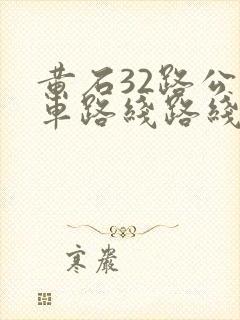 黄石32路公
车路线路线
寒岩